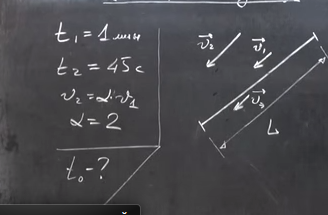 t₁ = 1 мин
t₂ = 45 с
v₂ = α·v₁
α = 2
t₀ - ?
v⃗₂
v⃗₁
v⃗₃
L